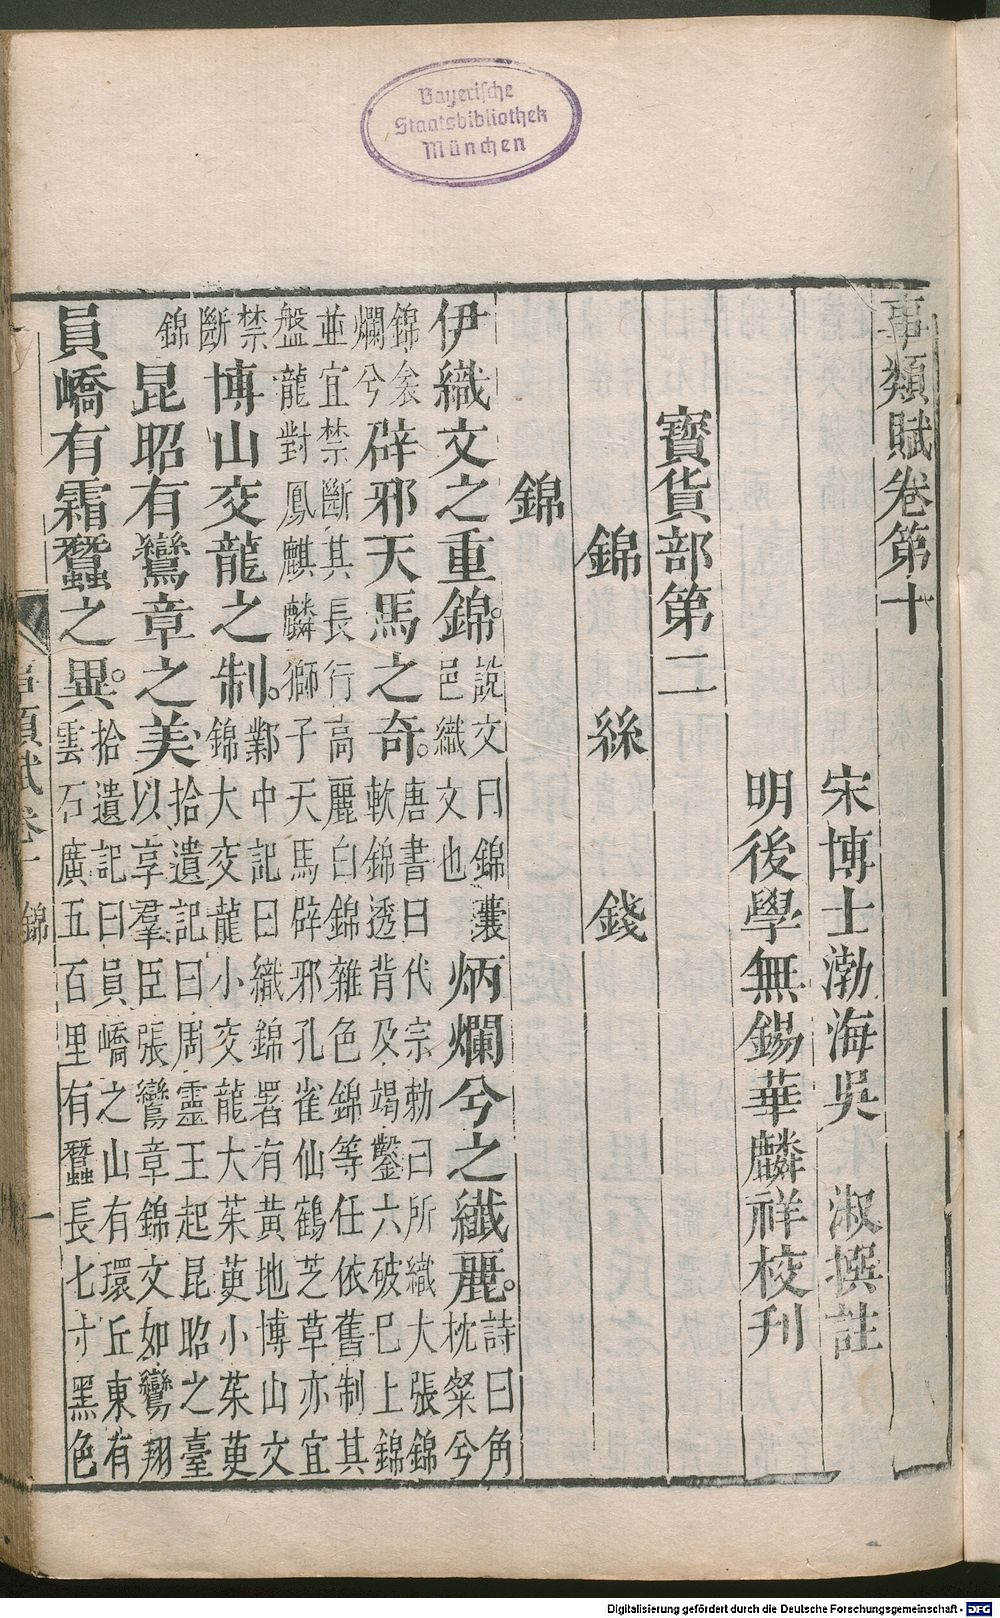 Bayerische
Staatsbibliothek
München
事類賦卷第十
宋博士渤海吳 淑撰註
明後學無錫華麟祥校刊
寶貨部第二
錦 絲 錢
錦
伊織文之重錦。說文曰錦襄邑織文也炳爛兮之纖麗。詩曰角枕粲兮
錦衾爛兮辟邪天馬之奇。唐書曰代宗勅曰所織大張錦軟錦透背及竭鑿六破已上錦
並宜禁斷其長行高麗白錦雜色錦等任依舊制其盤龍對鳳麒麟獅子天馬辟邪孔雀仙鶴芝草亦宜
禁斷博山交龍之制。鄴中記曰織錦署有黃地博山文錦大交龍小交龍大茱萸小茱萸
錦昆昭有鸞章之美拾遺記曰周靈王起昆昭之臺以享羣臣張鸞章錦文如鸞翔
員嶠有霜蠶之異。拾遺記曰員嶠之山有環丘東有雲石廣五百里有蠶長七寸黑色
事類賦卷十 錦 一
Digitalisierung gefördert durch die Deutsche Forschungsgemeinschaft - DFG